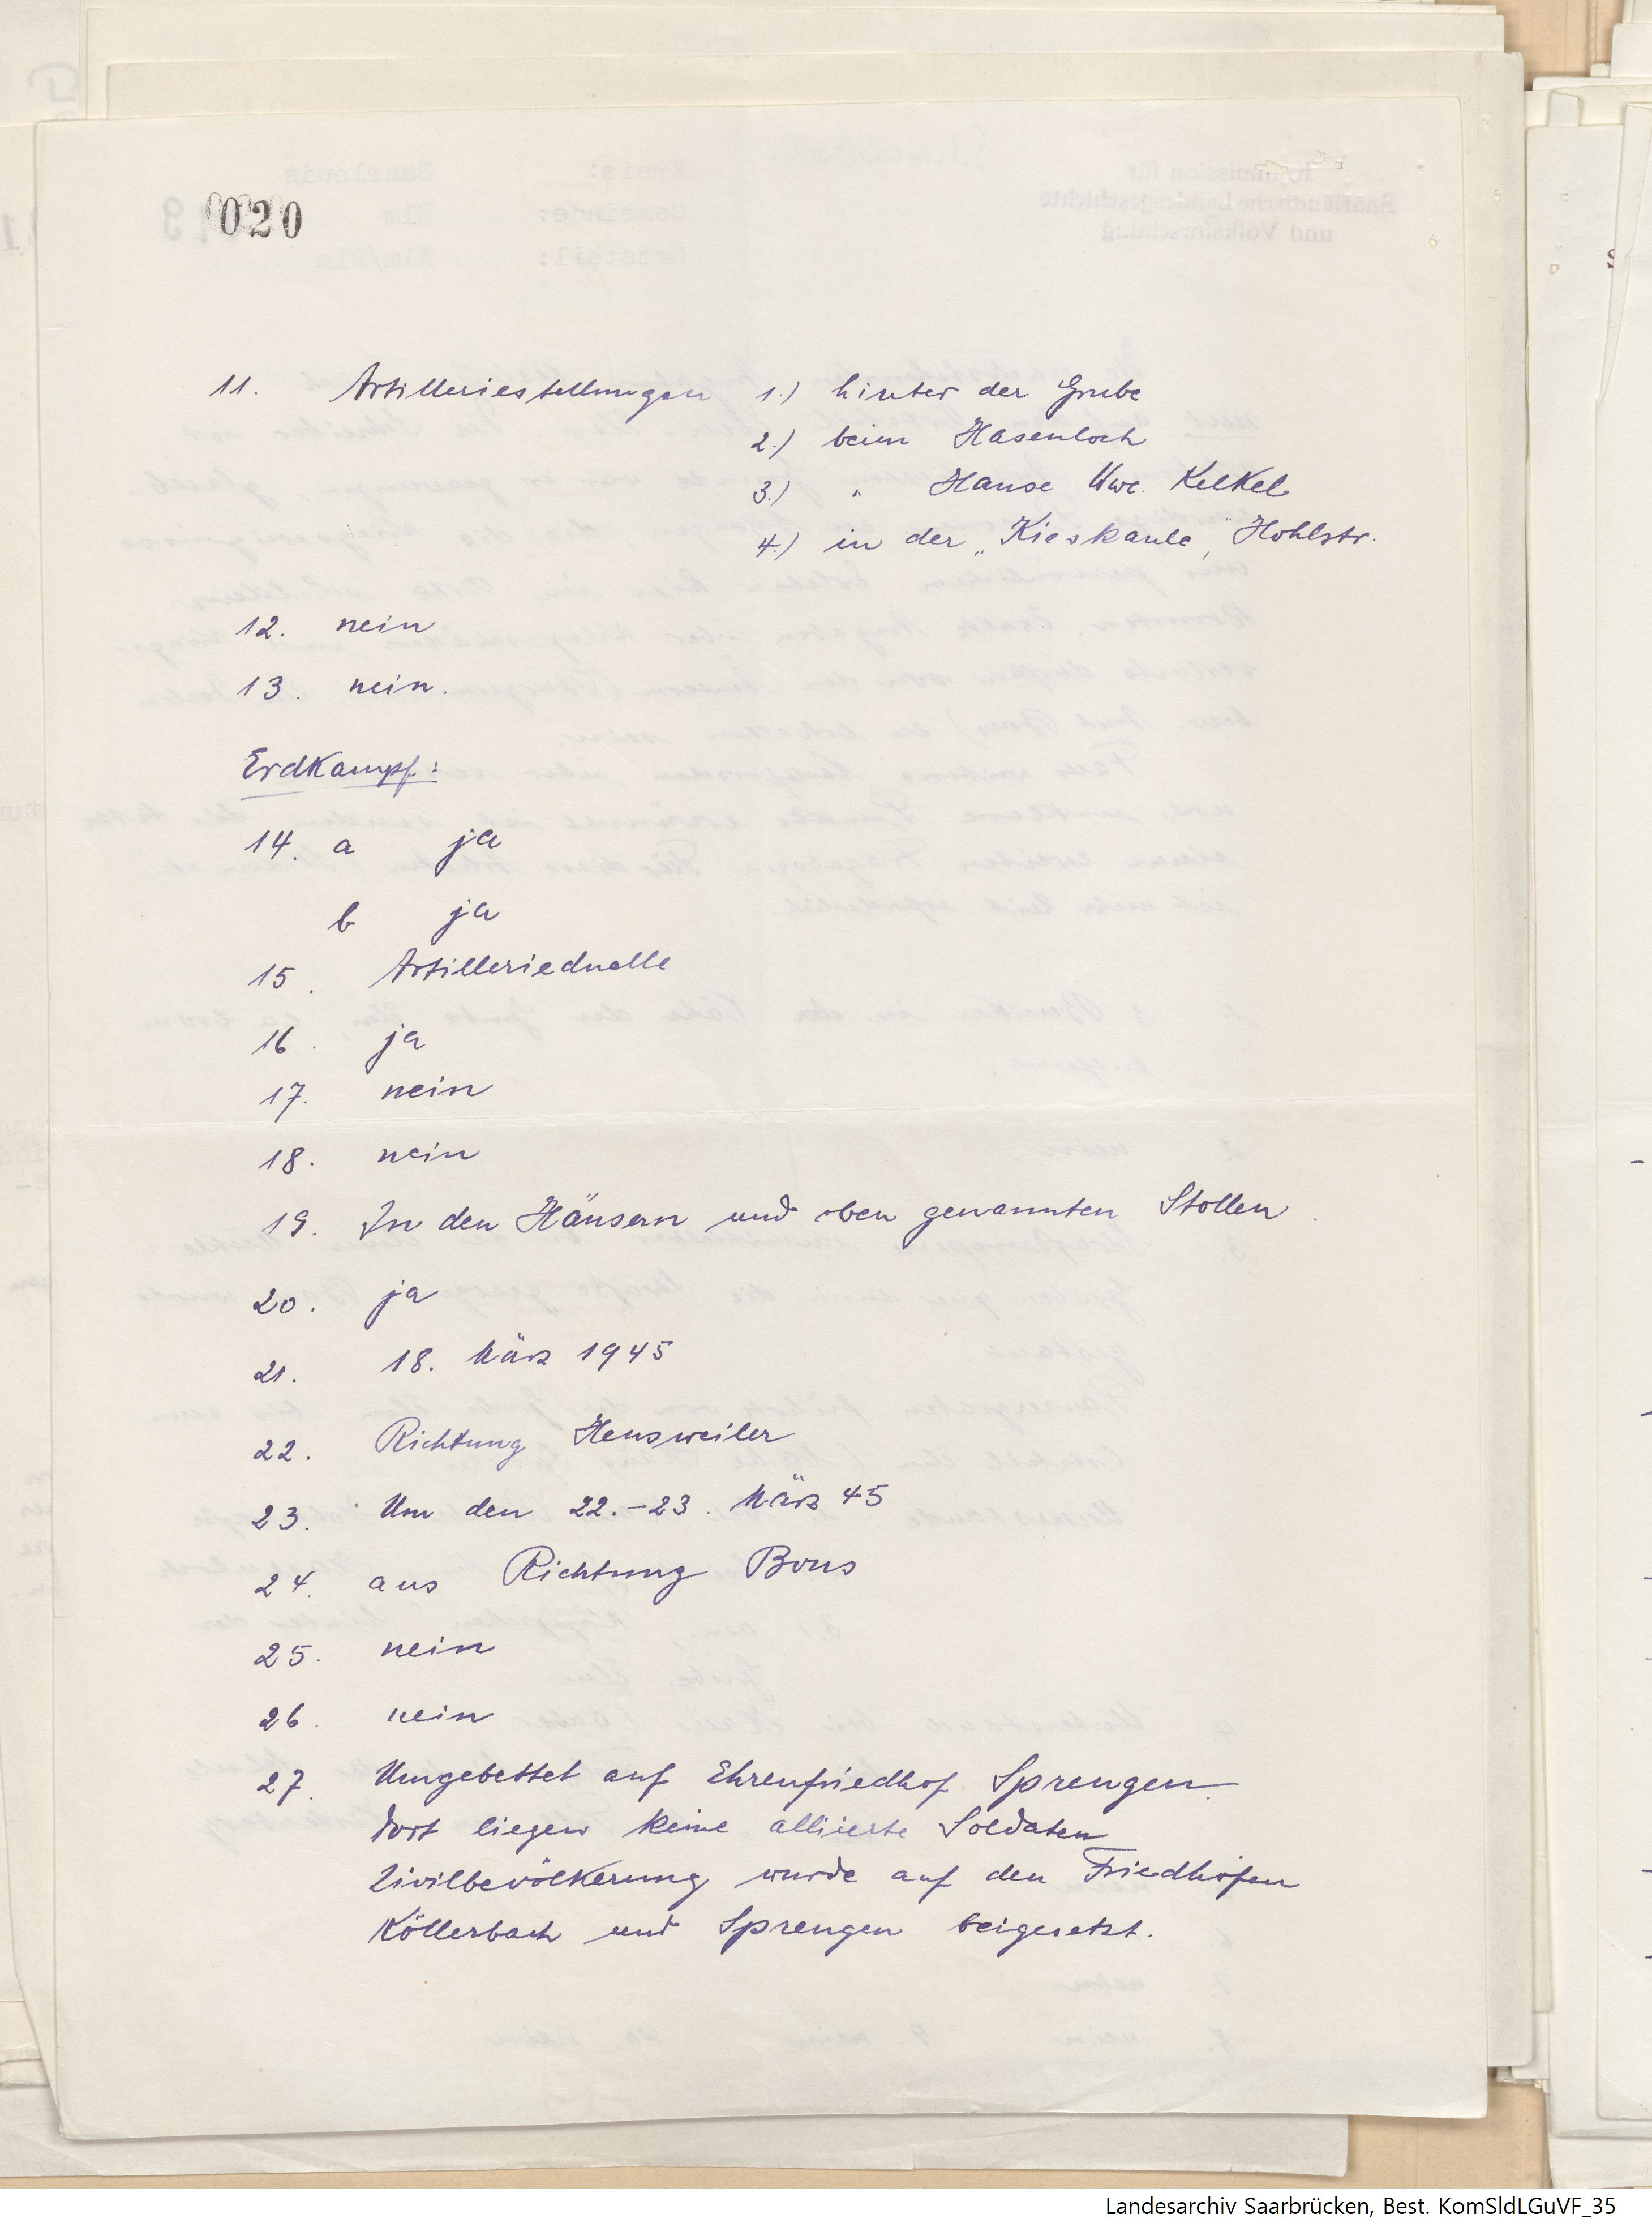 020
11. Artilleriestellungen 1.) hinter der Grube
2.) beim Hasenloch
3.) " Hause Wwe. Kelkel
4.) in der „Kieskaule" Hohlstr.
12. nein
13. nein.
Erdkampf:
14. a ja
b ja
15. Artillerieduelle
16. ja
17. nein
18. nein
19. In den Häusern und oben genannten Stollen.
20. ja
21. 18. März 1945
22. Richtung Heusweiler
23. Um den 22.-23. März 45
24. aus Richtung Bous
25. nein
26. nein
27. Umgebettet auf Ehrenfriedhof Sprengen.
Dort liegen keine alliierte Soldaten
Zivilbevölkerung wurde auf den Friedhöfen
Köllerbach und Sprengen beigesetzt.
Landesarchiv Saarbrücken, Best. KomSldLGuVF_35